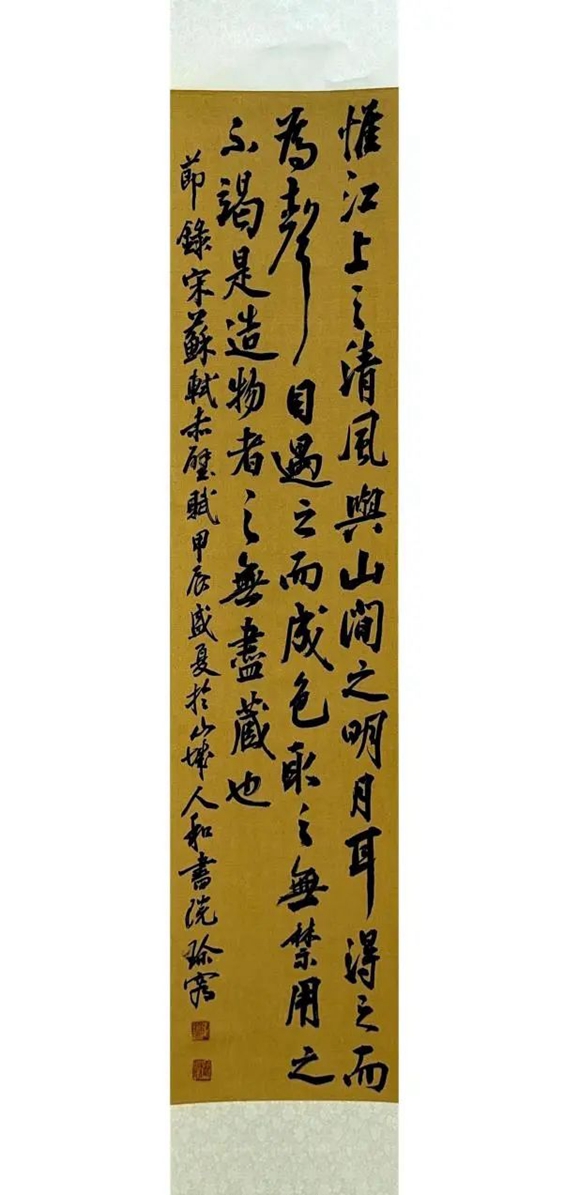 惟江上之清風與山間之明月耳得之而
為聲目遇之而成色取之無禁用之
不竭是造物者之無盡藏也
節錄宋蘇軾赤壁賦甲辰盛夏於山城人和書院